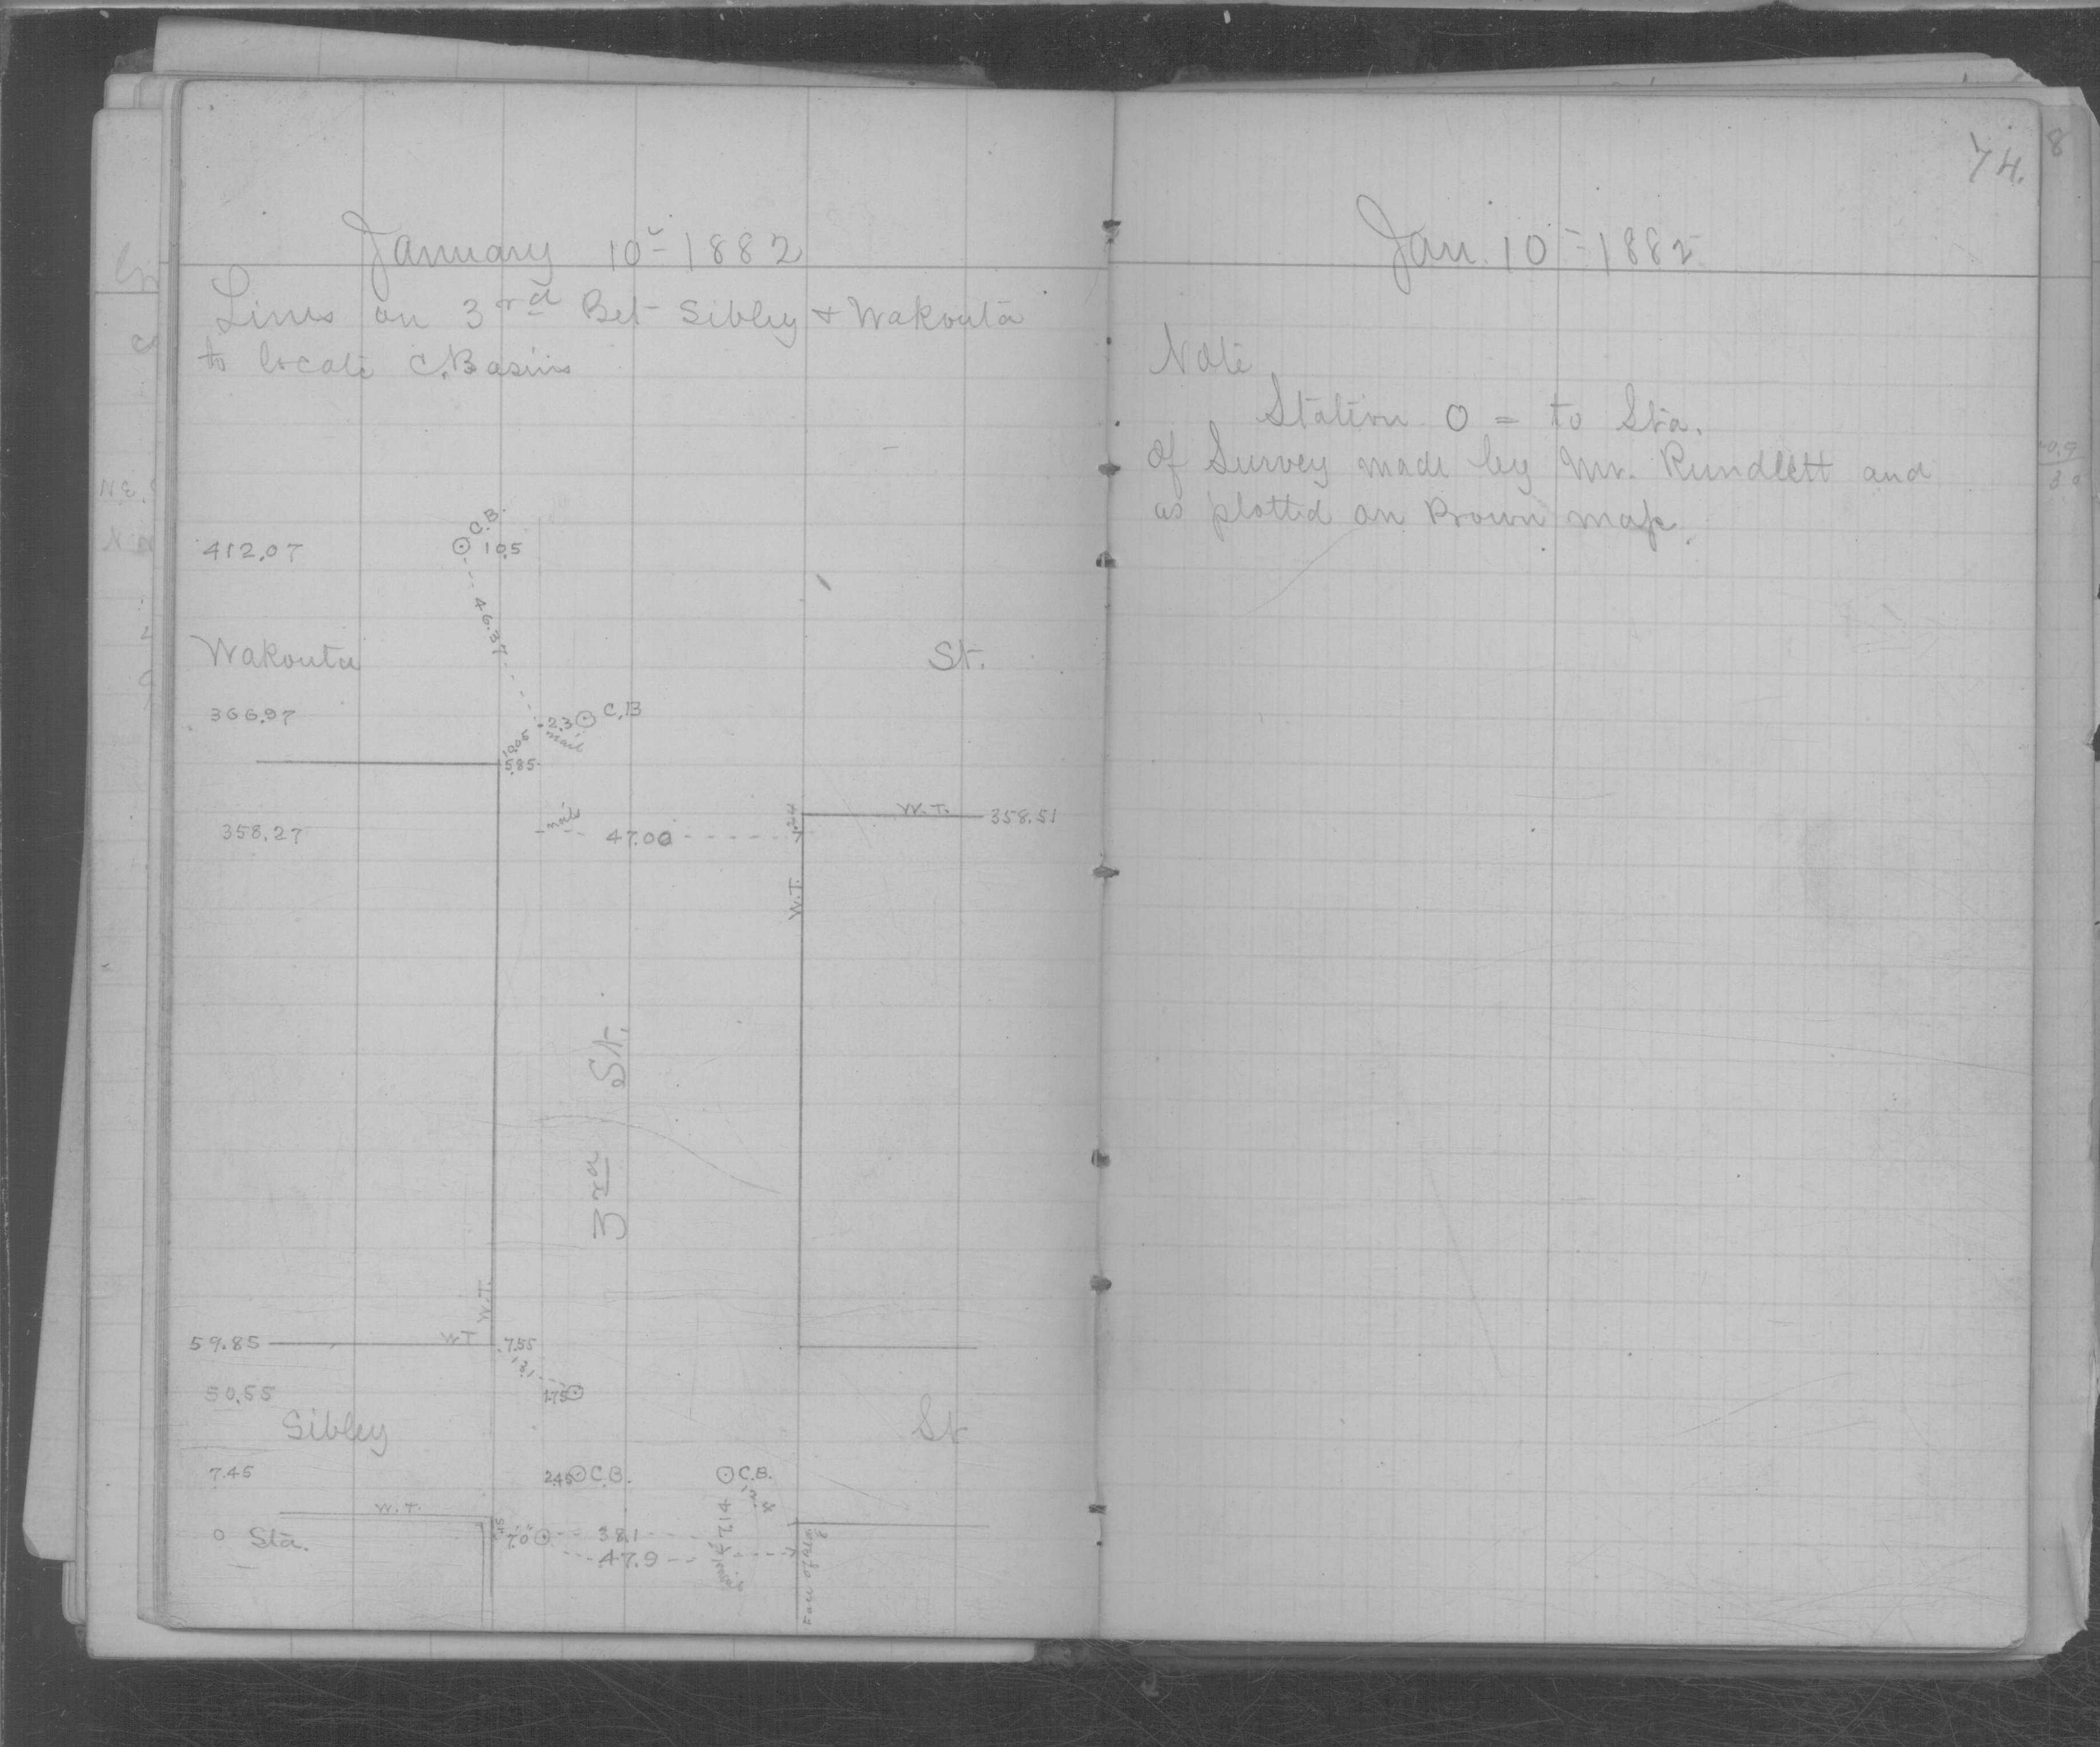 January 10 - 1882
Lines on 3rd Bet Sibley & Wakouta
to locate C. Basins
C.B.
412.07
10.5
46.37
Wakouta St.
366.97
2.3
C.B
nail
10.05
5.85
W.T.
358.51
.24
358.27
nail
47.00
W.T.
3rd St.
W.T.
59.85
W.T
7.55
13.1
50.55
1.75
Sibley St
7.45
2.45
C.B.
C.B.
W.T.
7.14
0 Sta.
7.0
38.1
47.9
Face of
74.
Jan. 10 - 1882
Note
Station 0 = to Sta.
of Survey made by Mr. Rundlett and
as plotted on Brown map.
8
N.E.